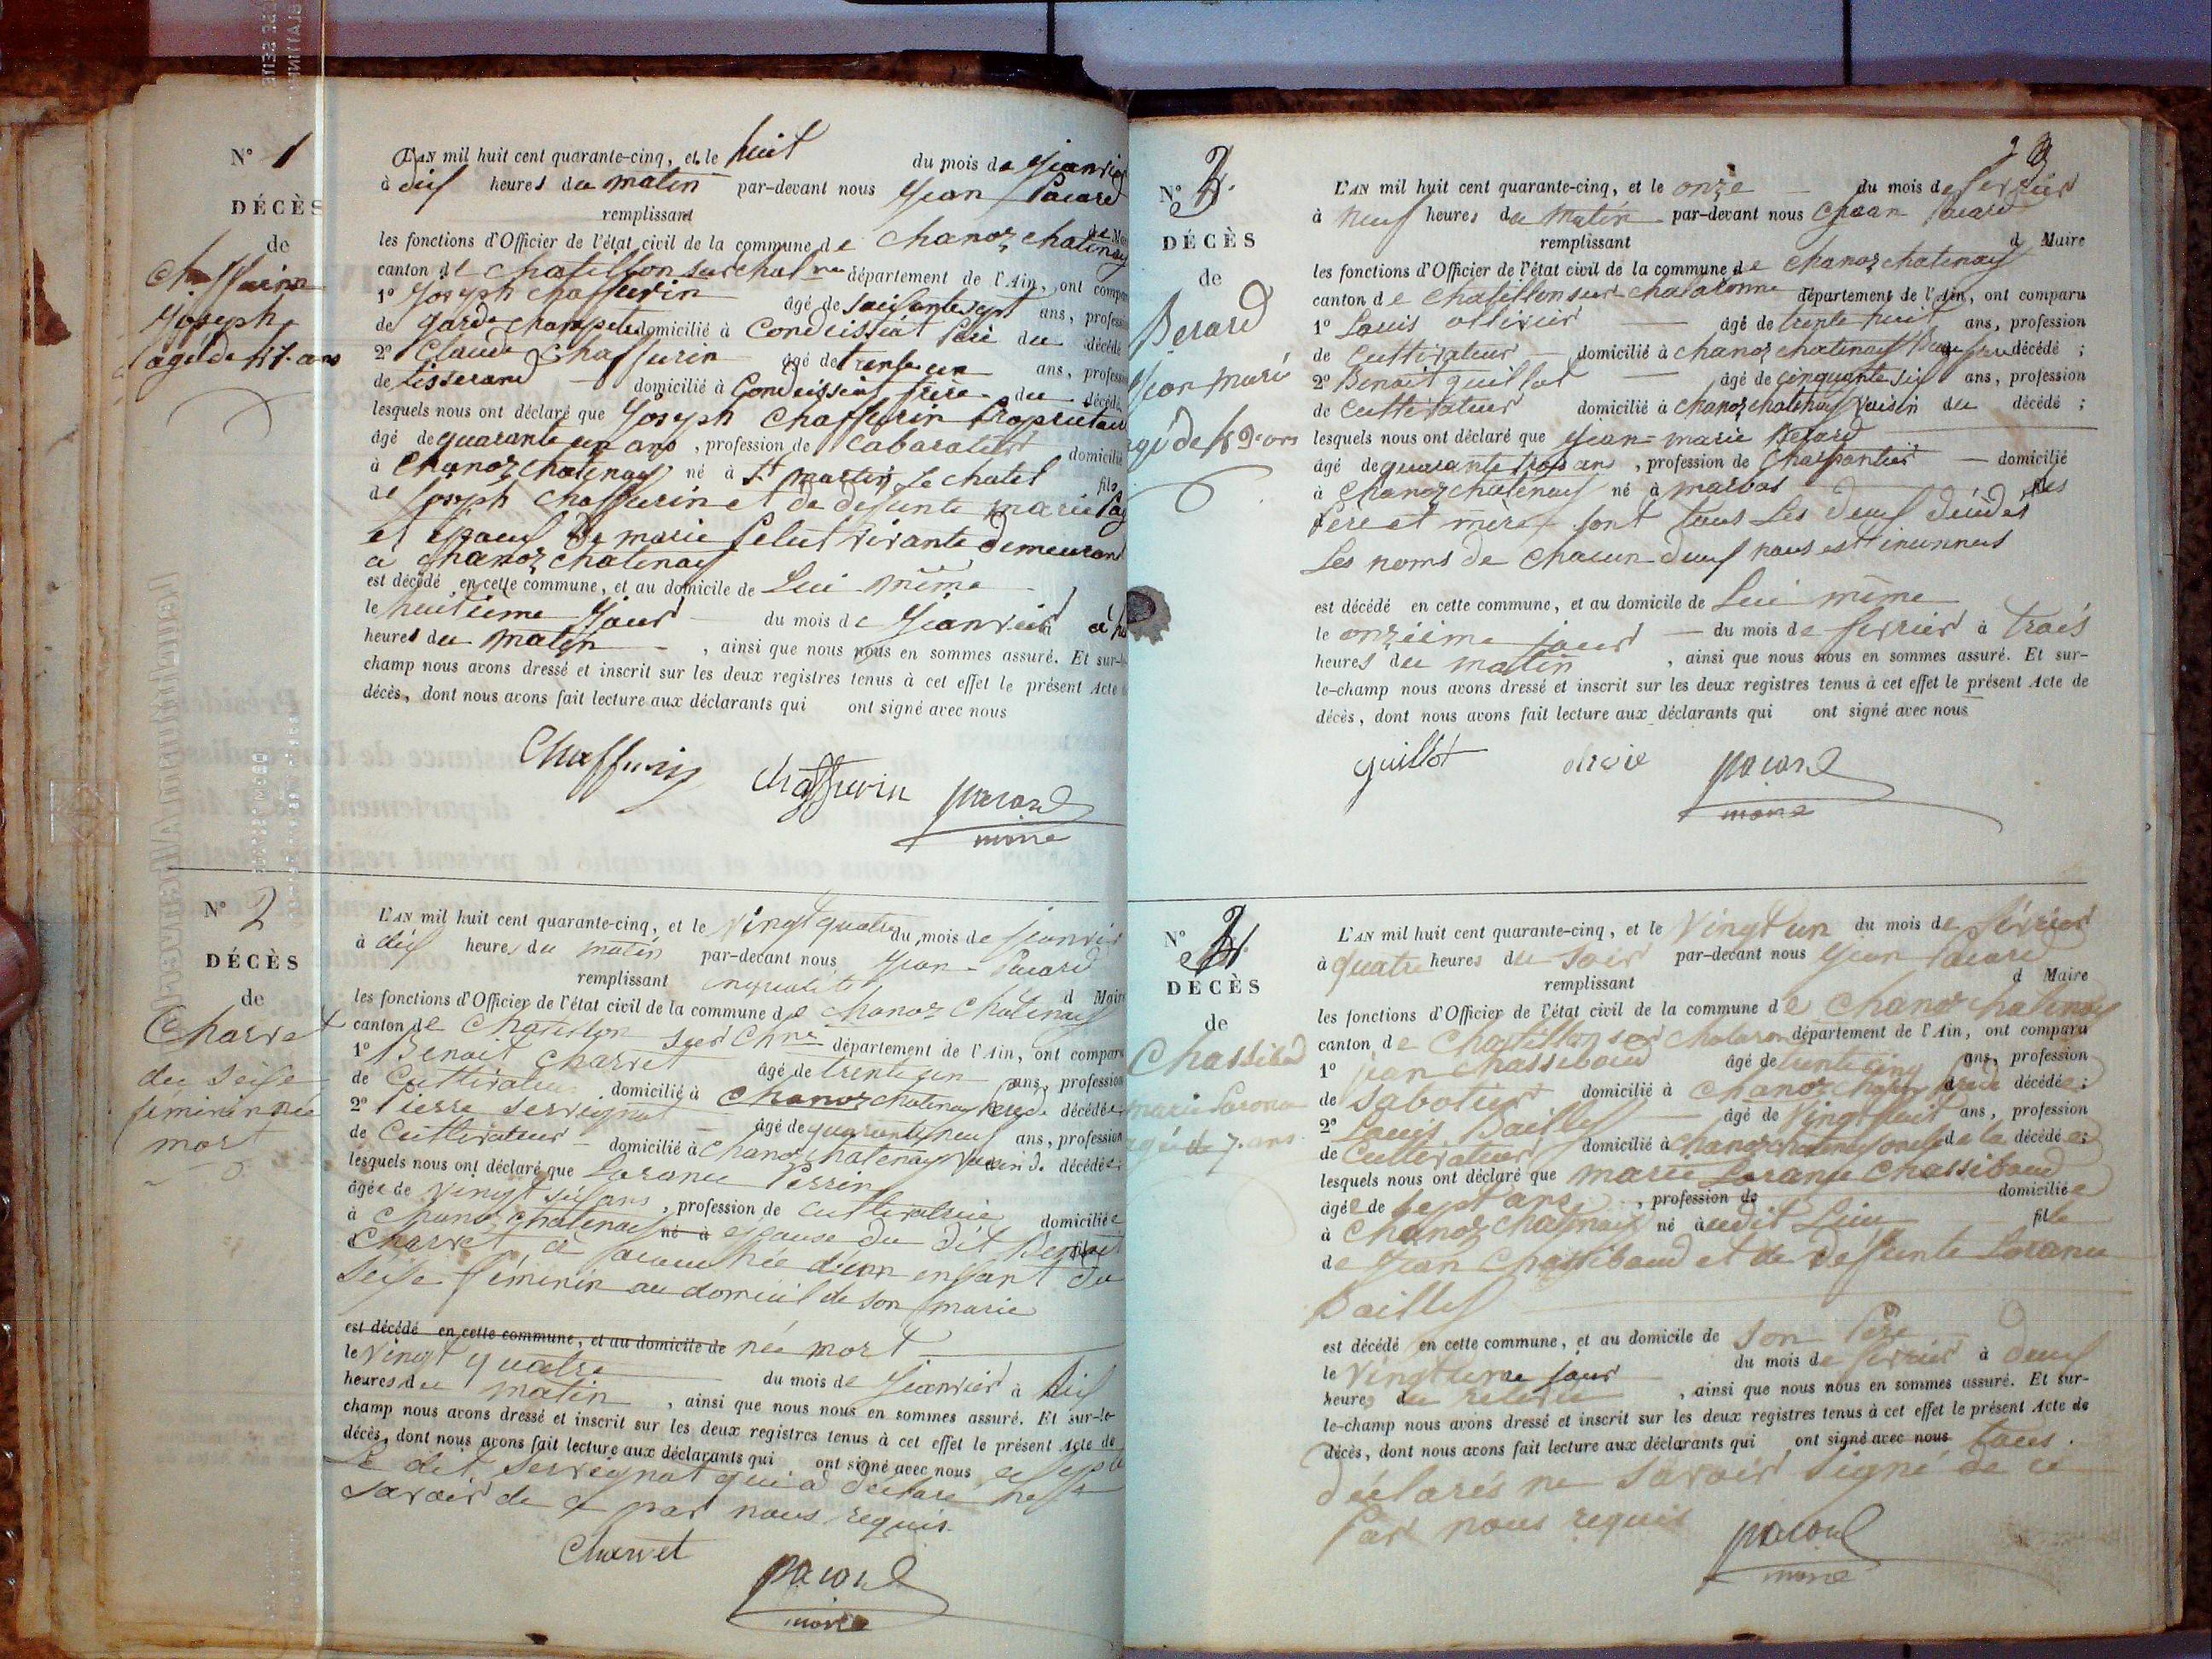 N° 1
DÉCÈS
de
Chaffurin
Joseph
agé de 41 ans
L'AN mil huit cent quarante-cinq, et le huit du mois de Janvier
à dix heures du matin par-devant nous Jean Pacard
remplissant
les fonctions d'Officier de l'état civil de la commune de Chanoz chatenay
canton de Chatillon sur chal département de l'Ain, ont compar
1° Joseph chaffurin âgé de soixante sept ans, professi
de garde champete domicilié à Condeissiat Père du décédé
2° Claude Chaffurin âgé de trente un ans, professi
de tisserand domicilié à Condeissiat frère du décédé
lesquels nous ont déclaré que Joseph Chaffurin Propriétai
âgé de quarante un ans, profession de Cabaratier domicilié
à Chanoz chatenay né à St martin le chatel fils
de Joseph Chaffurin et de defunte marie
et Epoux de marie Pelut vivante demeurant
a Chanoz chatenay
est décédé en cette commune, et au domicile de Lui même
le huitième Jour du mois de Janvier à
heures du matin, ainsi que nous nous en sommes assuré. Et sur-le-
champ nous avons dressé et inscrit sur les deux registres tenus à cet effet le présent Acte
décès, dont nous avons fait lecture aux déclarants qui ont signé avec nous
Chaffurin chaffurin pacard
maire
N° 2
DÉCÈS
de
Charvet
du sexe
féminin née
mort
L'AN mil huit cent quarante-cinq, et le Vingt quatre du mois de Janvier
à dix heures du matin par-devant nous Jean Pacard
remplissant
les fonctions d'Officier de l'état civil de la commune de Chanoz Chatenay d Maire
canton de Chatillon sur Chne département de l'Ain, ont comparu
1° Benoit Charvet âgé de trente un ans, profession
de Cultivateur domicilié à Chanoz chatenay décédée
2° Pierre Servignat âgé de quarante neuf ans, profession
de Cultivateur domicilié à Chanoz chatenay Voisin de décédée
lesquels nous ont déclaré que Lorance Perrin
âgée de vingt six ans, profession de Cultivatrice domiciliée
à Chanoz chatenay né à epouse du dit Benoit
Charvet à acouchée d'un enfant du
sexe féminin au domicil de son marie
est décédé en cette commune, et au domicile de née mort
le Vingt quatre du mois de Janvier à six
heures du matin, ainsi que nous nous en sommes assuré. Et sur-le-
champ nous avons dressé et inscrit sur les deux registres tenus à cet effet le présent Acte de
décès, dont nous avons fait lecture aux déclarants qui ont signé avec nous
Le dit Servignat qui à déclaré ne
savoir de ce par nous requis
Charvet pacard
maire
3
N° 3.
DÉCÈS
de
Berard
Jean marie
agé de 49 ans
L'AN mil huit cent quarante-cinq, et le onze du mois de fevrier
à neuf heures du matin par-devant nous Jean Pacard
remplissant d Maire
les fonctions d'Officier de l'état civil de la commune de Chanoz chatenay
canton de Chatillon sur chalaronne département de l'Ain, ont comparu
1° Louis ollivier âgé de trente huit ans, profession
de Cultivateur domicilié à Chanoz chatenay Beau frere décédé ;
2° Benoit guillot âgé de cinquante six ans, profession
de Cultivateur domicilié à Chanoz chatenay Voisin du décédé ;
lesquels nous ont déclaré que Jean-marie Berard
âgé de quarante ans, profession de Charpantier domicilié
à Chanoz chatenay né à marbos ses
Père et mère sont tous Les deux décédés
Les noms de Chacun deux nous est inconnus
est décédé en cette commune, et au domicile de Lui même
le onzième jour du mois de fevrier à trois
heures du matin, ainsi que nous nous en sommes assuré. Et sur-
le-champ nous avons dressé et inscrit sur les deux registres tenus à cet effet le présent Acte de
décès, dont nous avons fait lecture aux déclarants qui ont signé avec nous
guillot pacard
maire
N° 4
DÉCÈS
de
Chassibaud
marie
agée de 7. ans
L'AN mil huit cent quarante-cinq, et le Vingt un du mois de fevrier
à quatre heures du soir par-devant nous Jean Pacard
remplissant d Maire
les fonctions d'Officier de l'état civil de la commune de Chanoz chatenay
canton de Chatillon sur chalaron département de l'Ain, ont comparu
1° jean chassibaud âgé de trente cinq ans, profession
de Sabotier domicilié à Chanoz chatenay décédée ;
2° Louis Bailly âgé de Vingt huit ans, profession
de Cultivateur domicilié à Chanoz chatenay oncle de la décédée ;
lesquels nous ont déclaré que marie Lorance Chassibaud
âgée de sept ans, profession de domiciliée
à Chanoz chatenay né àudit Lieu fille
de Jean Chassibaud et de defunte Lorance
Bailly
est décédé en cette commune, et au domicile de son Père
le Vingt une jour du mois de fevrier à deux
heures du, ainsi que nous nous en sommes assuré. Et sur-
le-champ nous avons dressé et inscrit sur les deux registres tenus à cet effet le présent Acte de
décès, dont nous avons fait lecture aux déclarants qui ont signé avec nous tous
déclarés ne savoir signé de ce
Par nous requis
pacard
maire